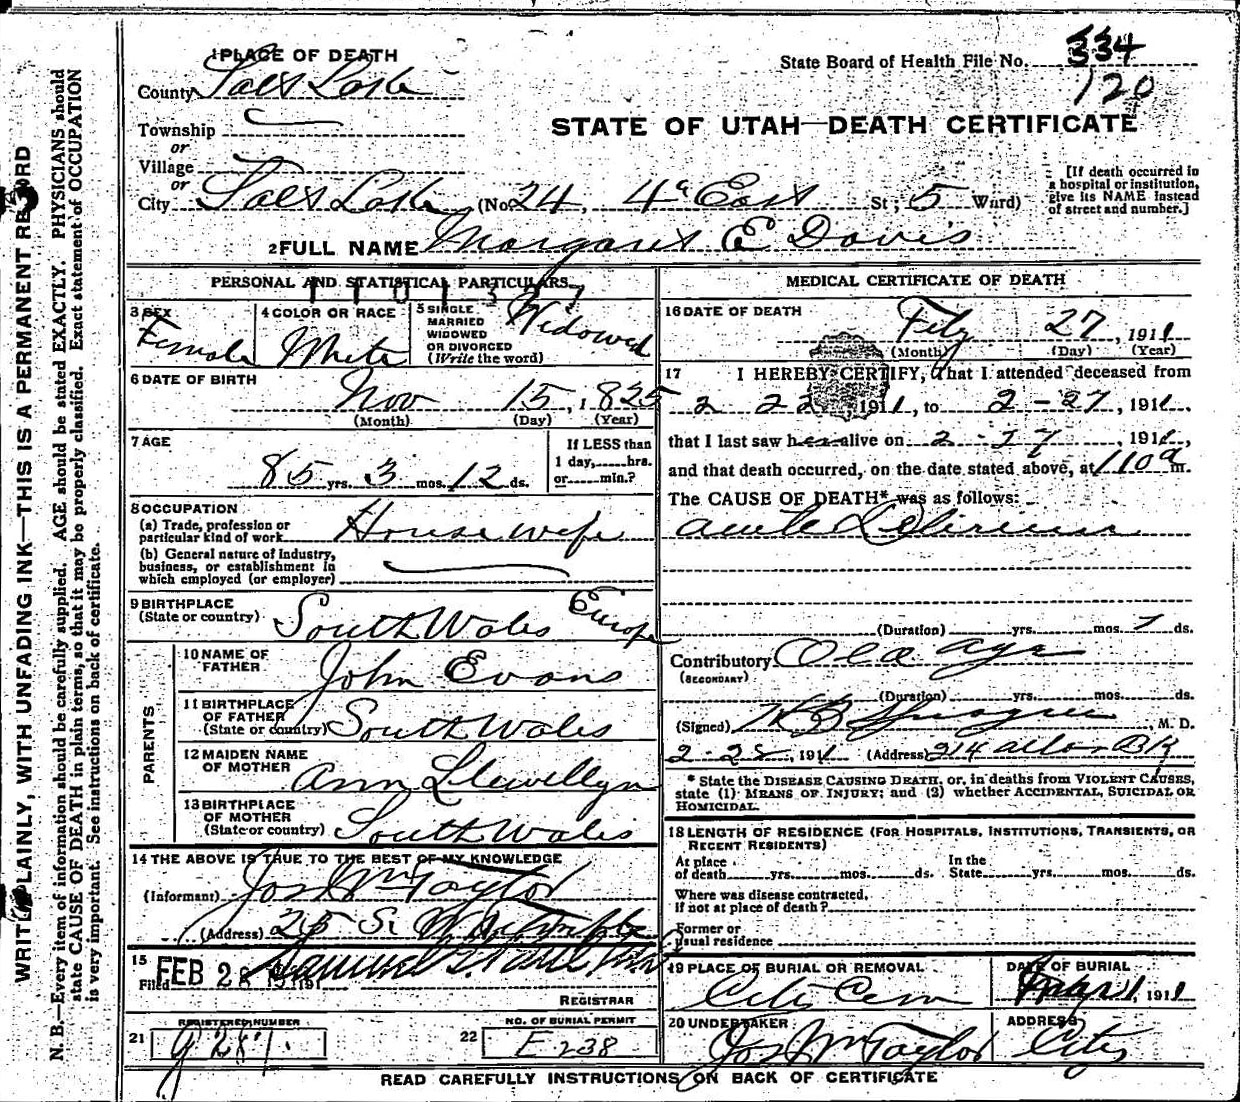 1 PLACE OF DEATH
County Salt Lake
State Board of Health File No. 334
120
Township
or
Village
or
STATE OF UTAH—DEATH CERTIFICATE
City Salt Lake (No. 24, 4th East St; 5 Ward)
[If death occurred in
a hospital or institution,
give its NAME instead
of street and number.]
2 FULL NAME Margaret E Davis
PERSONAL AND STATISTICAL PARTICULARS
3 SEX Female
4 COLOR OR RACE White
5 SINGLE
MARRIED
WIDOWED
OR DIVORCED
(Write the word) Widowed
6 DATE OF BIRTH
Nov 15, 1825
(Month) (Day) (Year)
7 AGE
85 yrs. 3 mos. 12 ds.
If LESS than
1 day, hrs.
or min.?
8 OCCUPATION
(a) Trade, profession or
particular kind of work House wife
(b) General nature of Industry,
business, or establishment in
which employed (or employer)
9 BIRTHPLACE
(State or country) South Wales Europe
PARENTS
10 NAME OF
FATHER John Evans
11 BIRTHPLACE
OF FATHER
(State or country) South Wales
12 MAIDEN NAME
OF MOTHER Ann Llewellyn
13 BIRTHPLACE
OF MOTHER
(State or country) South Wales
14 THE ABOVE IS TRUE TO THE BEST OF MY KNOWLEDGE
(Informant) Jos Wm Taylor
(Address) 25 S. W. Temple
15
Filed FEB 28 1911
REGISTRAR
21 REGISTERED NUMBER
22 NO. OF BURIAL PERMIT
E 238
MEDICAL CERTIFICATE OF DEATH
16 DATE OF DEATH
Feby 27, 1911
(Month) (Day) (Year)
17 I HEREBY CERTIFY, That I attended deceased from
2 22, 1911, to 2-27, 1911,
that I last saw her alive on 2-27, 1911,
and that death occurred, on the date stated above, at 110 a m.
The CAUSE OF DEATH* was as follows:
acute Delirium
(Duration) yrs. mos. 7 ds.
Contributory Old age
(SECONDARY)
(Duration) yrs. mos. ds.
(Signed) Sprague, M. D.
2-28, 1911 (Address) 214 Atlas BK
* State the DISEASE CAUSING DEATH, or, in deaths from VIOLENT CAUSES,
state (1) MEANS OF INJURY; and (2) whether ACCIDENTAL, SUICIDAL OR
HOMICIDAL.
18 LENGTH OF RESIDENCE (FOR HOSPITALS, INSTITUTIONS, TRANSIENTS, OR
RECENT RESIDENTS)
At place In the
of death yrs. mos. ds. State yrs. mos. ds.
Where was disease contracted,
if not at place of death?
Former or
usual residence
19 PLACE OF BURIAL OR REMOVAL
City Cem
DATE OF BURIAL
Mar 1, 1911
20 UNDERTAKER
Jos Wm Taylor
ADDRESS
City
READ CAREFULLY INSTRUCTIONS ON BACK OF CERTIFICATE
WRITE PLAINLY, WITH UNFADING INK—THIS IS A PERMANENT RECORD
N. B.—Every item of information should be carefully supplied. AGE should be stated EXACTLY. PHYSICIANS should
state CAUSE OF DEATH in plain terms, so that it may be properly classified. Exact statement of OCCUPATION
is very important. See instructions on back of certificate.